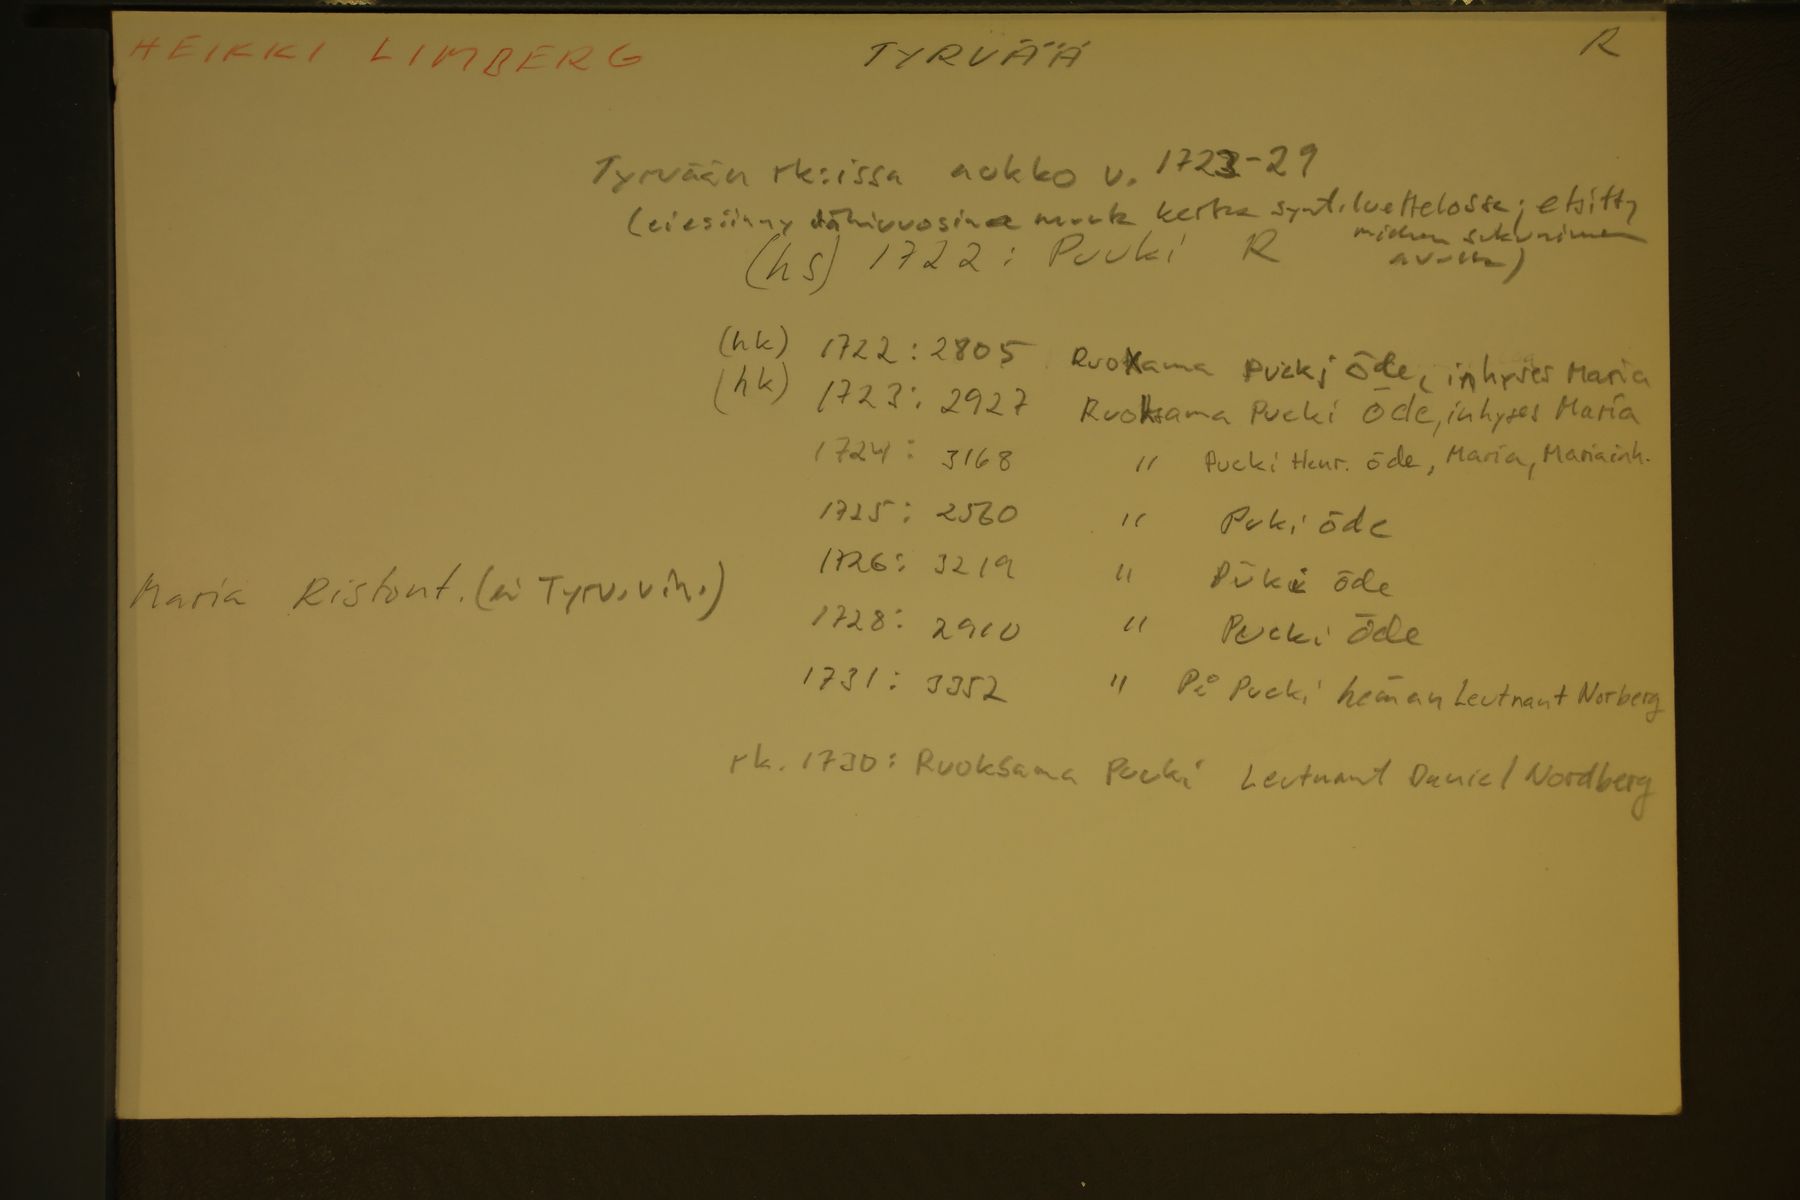 HEIKKI LIMBERG TYRVÄÄ R
Tyrvään rk:issa aukko v. 1723-29
(ei esiinny näinä vuosina synt.luettelossa; etsitty
miehen sukunimen
avulla)
(hs) 1722: Puuki R
(hk) 1722: 2805 Ruoksama Pucki öde, inhyses Maria
(hk) 1723: 2927 Ruoksama Pucki öde, inhyses Maria
1724: 3168 " Pucki Henr. öde, Maria, Maria inh.
1725: 2560 " Puki öde
1726: 3219 " Pūki öde
Maria Ristont. (ei Tyrv. vih.)
1728: 2910 " Pucki öde
1731: 3352 " På Pucki heman Leutnant Norberg
rk. 1730: Ruoksama Puuki Leutnant Daniel Nordberg